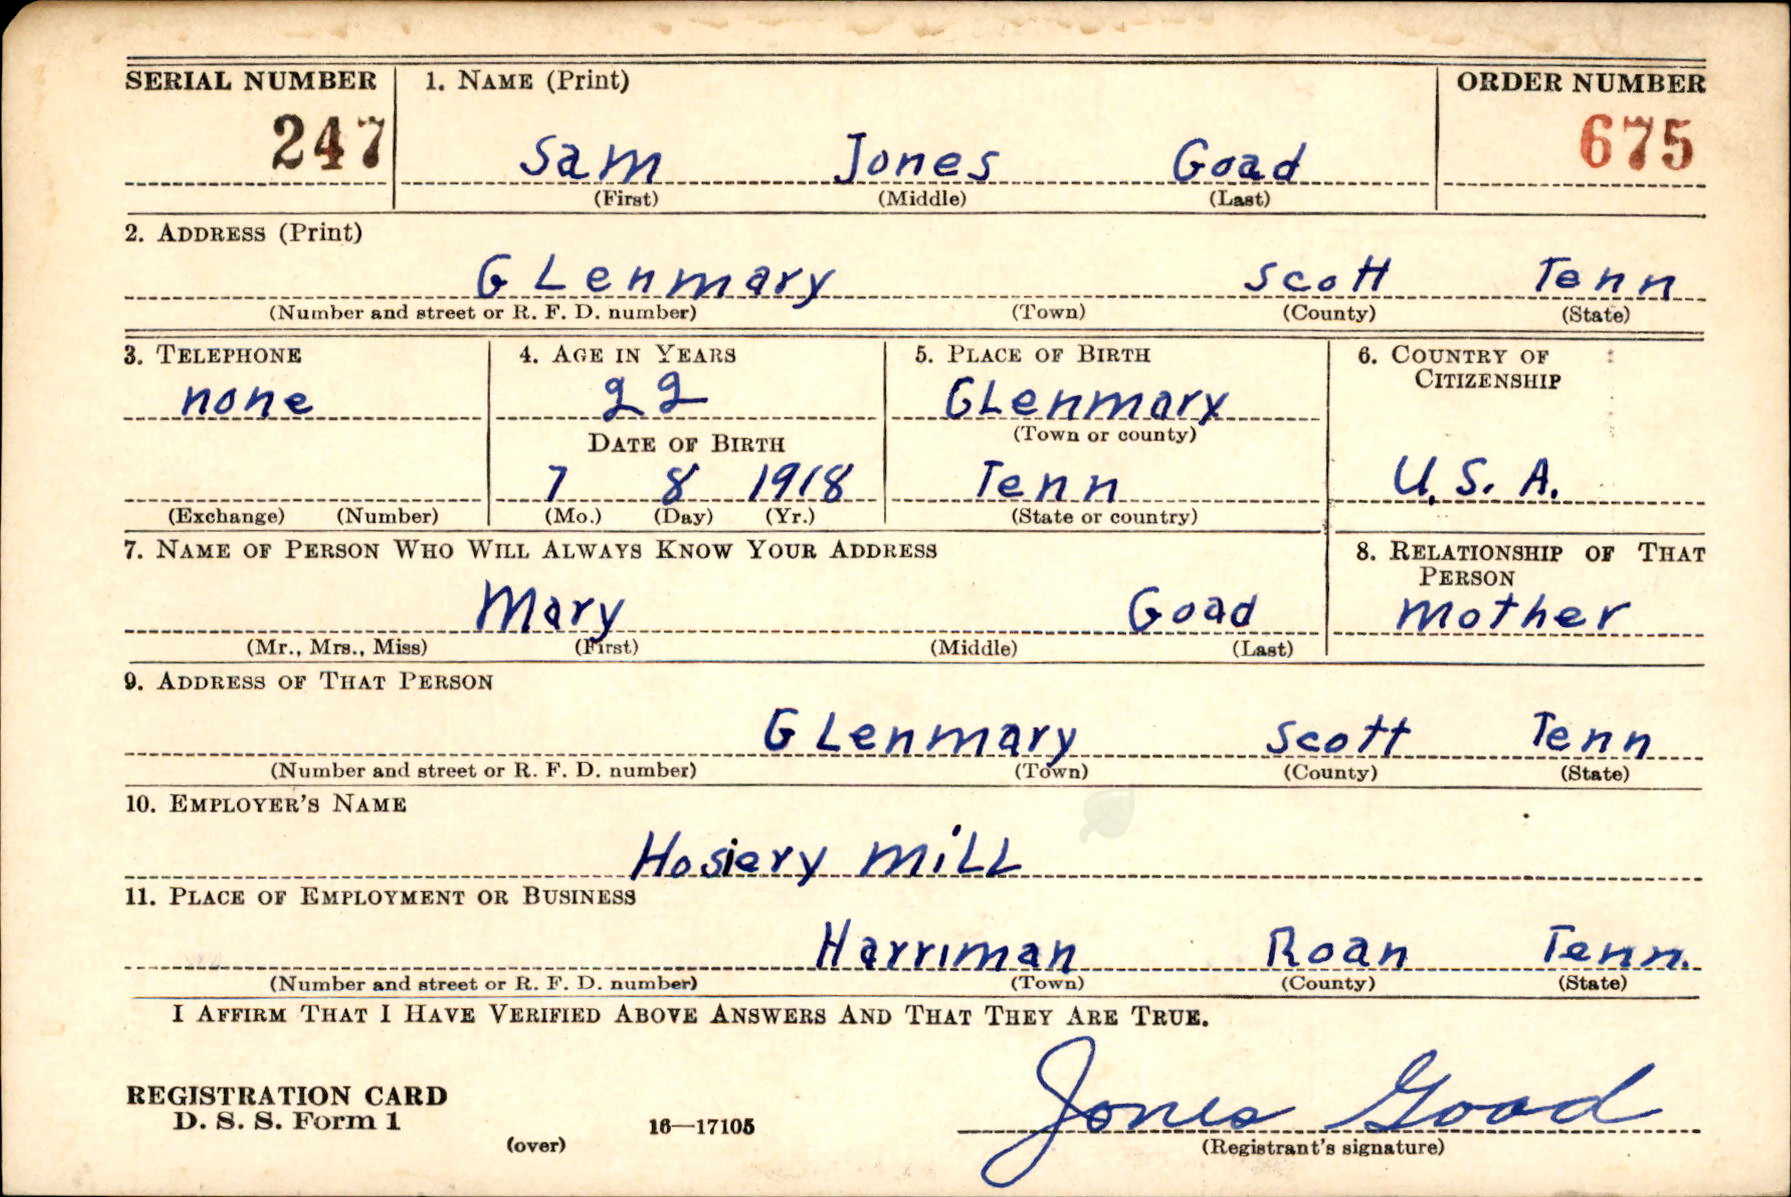 SERIAL NUMBER 1. NAME (Print) ORDER NUMBER
247 Sam Jones Goad 675
(First) (Middle) (Last)
2. ADDRESS (Print)
GLenmary Scott Tenn
(Number and street or R. F. D. number) (Town) (County) (State)
3. TELEPHONE 4. AGE IN YEARS 5. PLACE OF BIRTH 6. COUNTRY OF
CITIZENSHIP
none 22 GLenmary
DATE OF BIRTH (Town or county)
7 8 1918 Tenn U.S.A.
(Exchange) (Number) (Mo.) (Day) (Yr.) (State or country)
7. NAME OF PERSON WHO WILL ALWAYS KNOW YOUR ADDRESS 8. RELATIONSHIP OF THAT
PERSON
Mary Goad Mother
(Mr., Mrs., Miss) (First) (Middle) (Last)
9. ADDRESS OF THAT PERSON
GLenmary Scott Tenn
(Number and street or R. F. D. number) (Town) (County) (State)
10. EMPLOYER'S NAME
Hosiery MiLL
11. PLACE OF EMPLOYMENT OR BUSINESS
Harriman Roan Tenn.
(Number and street or R. F. D. number) (Town) (County) (State)
I AFFIRM THAT I HAVE VERIFIED ABOVE ANSWERS AND THAT THEY ARE TRUE.
REGISTRATION CARD
D. S. S. Form 1 Jones Goad
(over) 16—17105 (Registrant's signature)